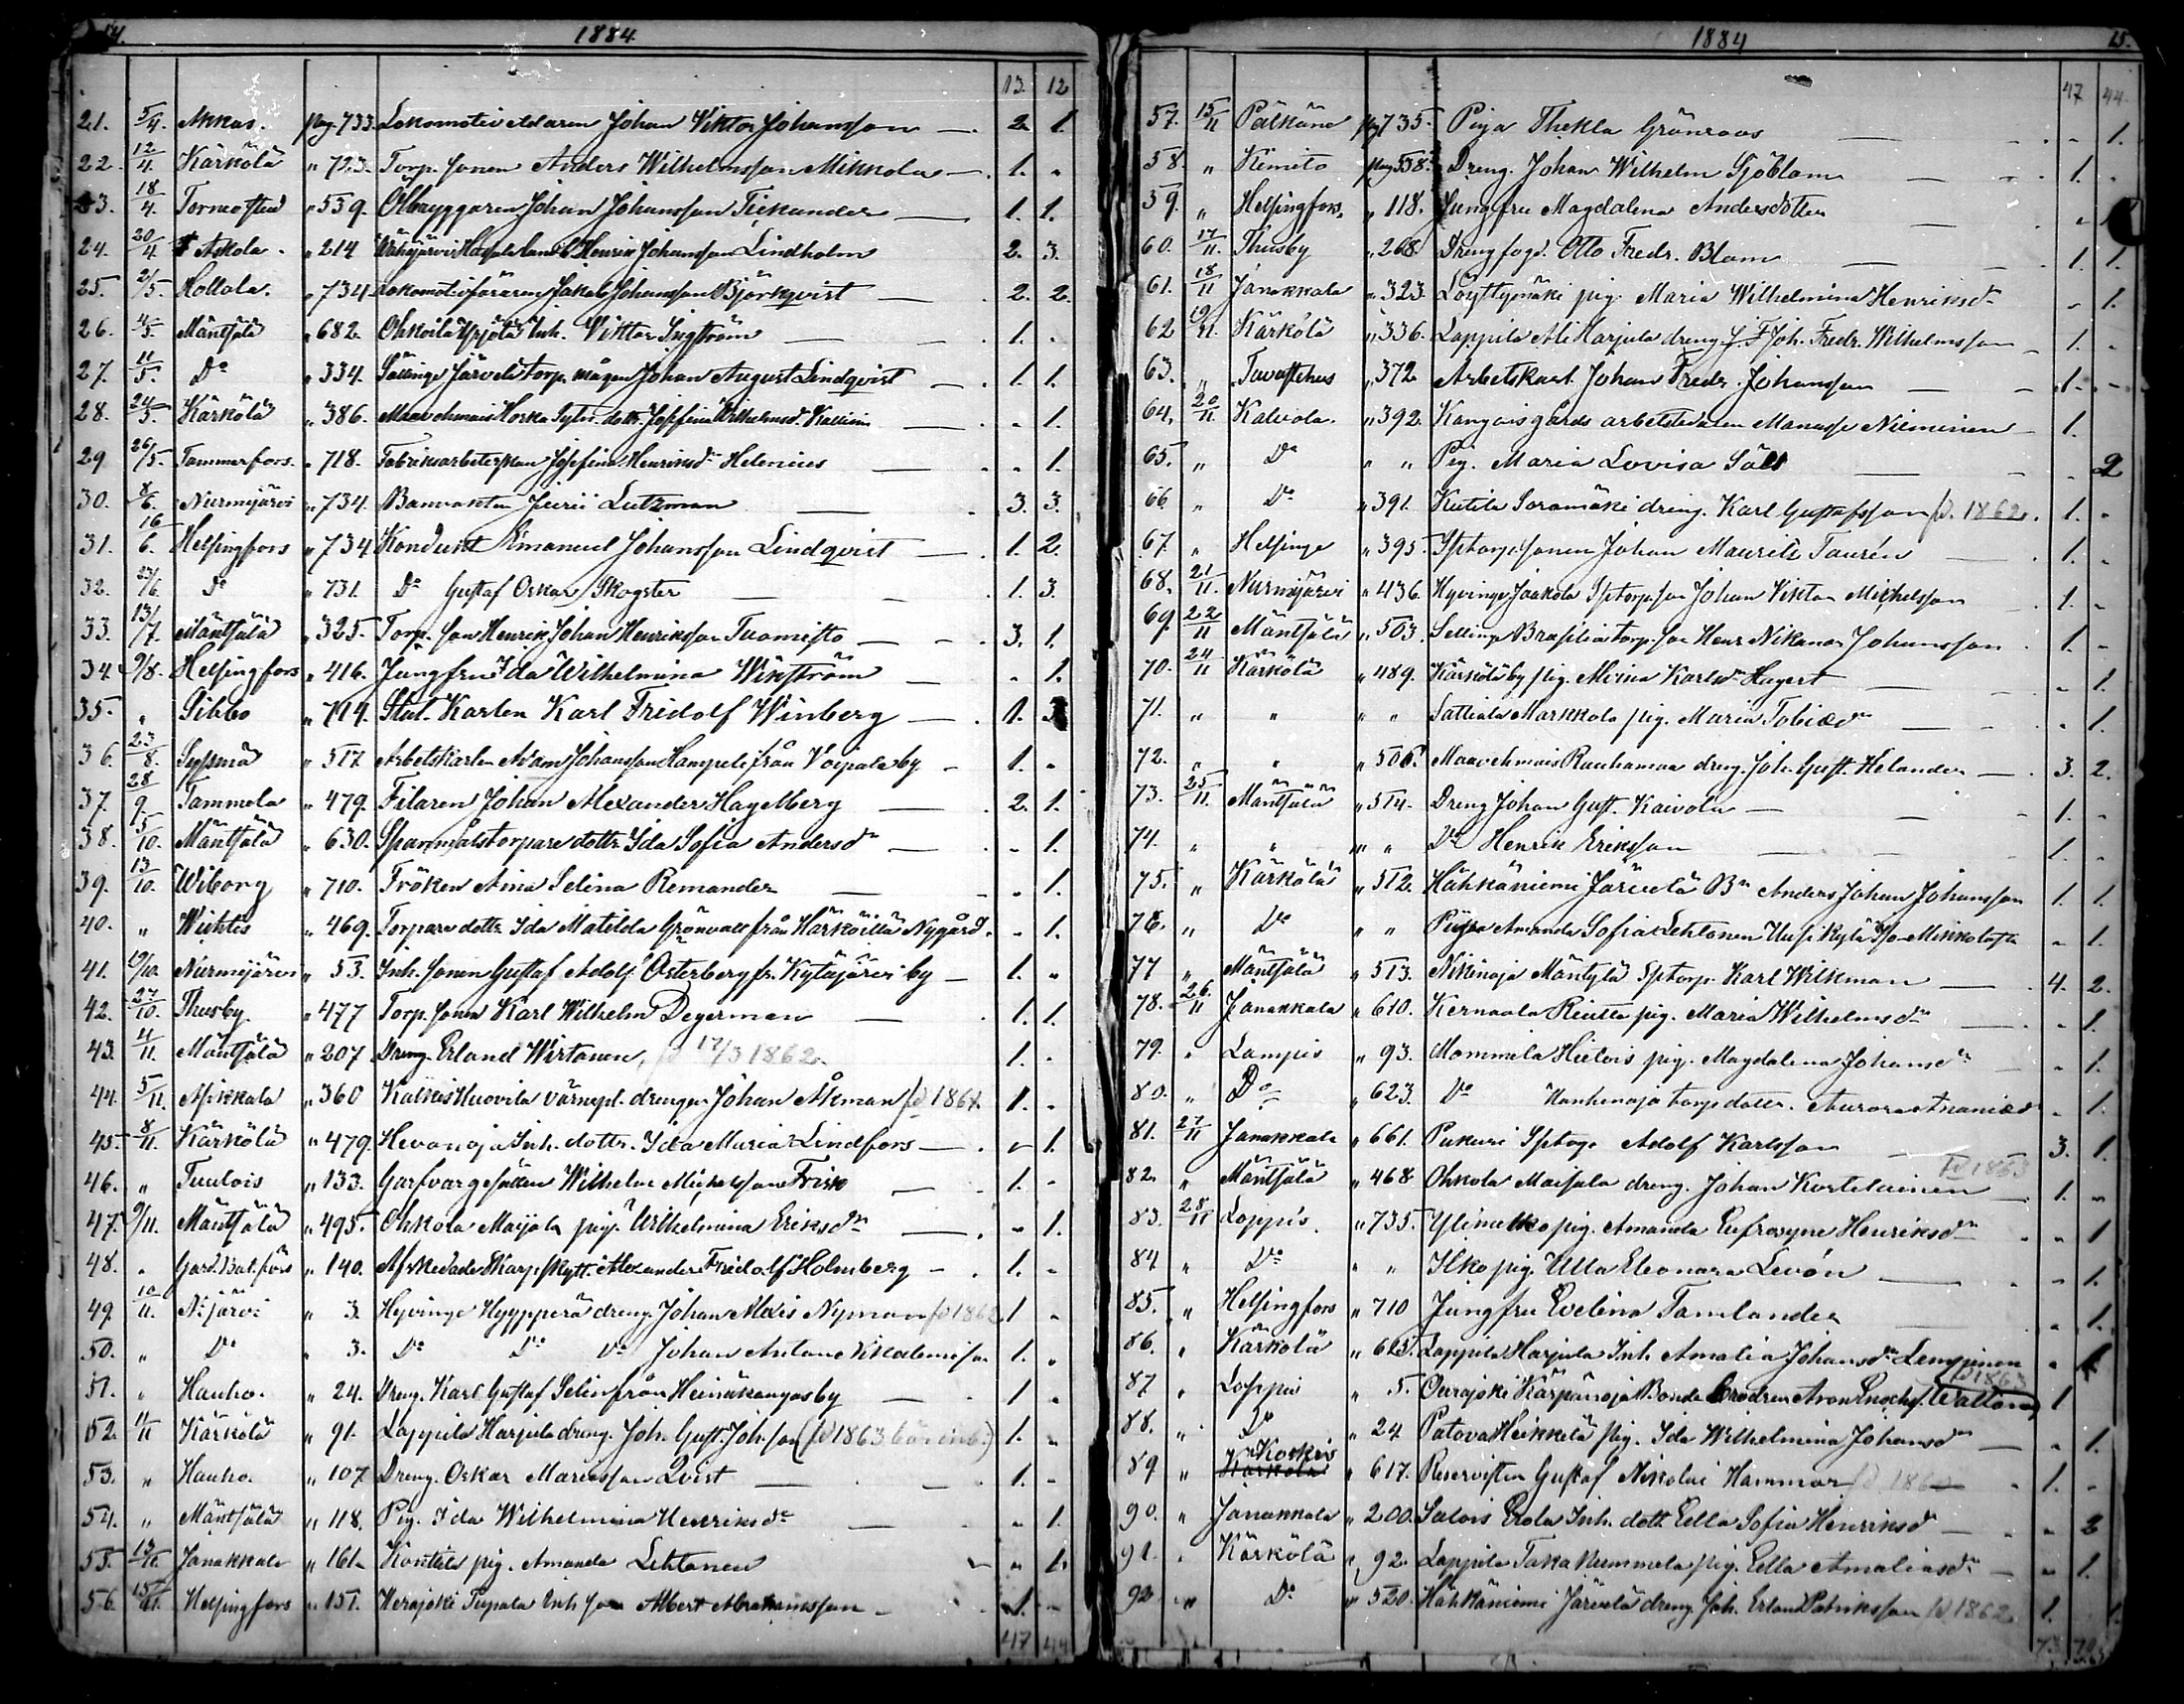 14. 1884
13. 12
21. 5/4. Akkas. pag. 733. Lokomotiv eldaren Johan Viktor Johansson — 2. 1.
22. 12/4. Kärkölä " 723. Torp. sonen Anders Wilhelmsson Mikkola — 1. "
23. 18/4. " 539. Ölbryggaren Johan Johansson Tickander — 1. 1.
24. 20/4 Askola. " 214 Henrik Johansson Lindholm 2. 3.
25. 2/5. Hollola. " 734 Lokomotivföraren Jakob Johansson Björkqvist — 2. 2.
26. 4/5. Mäntsälä " 682. Ohkola Inh. Viktor Sigström — 1. "
27. 11/5. Do " 334. Sälinge Järvelä torp. mågen Johan August Lindqvist — 1. 1.
28. 24/5. Kärkölä " 386. Maavehmais Koska dottr. Josefina Wilhelmsdr — " 1.
29 26/5. Tammerfors. " 718. Fabriksarbeterskan Josefina Henriksdr Helenius — " 1.
30. 8/6. Nurmijärvi " 734. Banvakten Jurii Lutzman — 3. 3.
31. 16/6. Helsingfors " 734 Kondukt Emanuel Johansson Lindqvist — 1. 2.
32. 23/6. Do " 731. Do Gustaf Oskar Skogster — 1. 3.
33. 13/7. Mäntsälä " 325. Torp. son Henrik Johan Henriksson Tuomisto — 3. 1.
34. 9/8. Helsingfors " 416. Jungfru Ida Wilhelmina Wikström — " 1.
35. " Sibbo " 714. Stat. Karlen Karl Fridolf Winberg — 1. 3
36. 23/8. Sysmä " 517 Arbetskarlen Adam Johansson från Voipala by — 1. "
37. 28/9. Tammela " 479. Filaren Johan Alexander Hagelberg — 2. 1.
38. 5/10. Mäntsälä " 630. Spannmålstorpare dottr Ida Sofia Andersdr — " 1.
39. 13/10. Wiborg " 710. Fröken Aina Selina Remander — " 1.
40. " Wichtis " 469. Torpare dottr Ida Matilda Grönvall från Härköilä Nygård. " 1.
41. 19/10. Nurmijärvi " 53. Inh. sonen Gustaf Adolf Österberg fr. Kytäjärvi by — 1. "
42. 27/10. Thusby " 477 Torp. sonen Karl Wilhelm Degerman — 1. 1.
43. 4/11. Mäntsälä " 207 Dreng. Erland Wirtanen, fd 17/3 1862. 1. "
44. 5/11. Asikkala " 360 Kalkis Huovila värnepl. drengen Johan Åkman fd 1864. 1. "
45. 8/11. Kärkölä " 479. Hevanoja Inh. dottr. Ida Maria Lindfors — " 1.
46. " Tuulois " 133. Garfvargesällen Wilhelm Michelsson Frisk — 1. "
47. 9/11. Mäntsälä " 495. Ohkola Maijala pig. Wilhelmina Eriksdr — " 1.
48. " Gard. Bat. förs " 140. Afskedade Skarpskytt. Alexander Fridolf Holmberg — 1. "
49. 10/11. N:järvi " 3. Hyvinge Hyypperä dreng. Johan Alexis Nyman fd 1862 1 "
50. " Do " 3. Do Do Do Johan Anton 1. "
51. " Hauho. " 24. Dreng. Karl Gustaf Selin från Heinäkangas by — 1 "
52. 11/11 Kärkölä " 91. Lappila Harjula dreng. Joh. Gust. Joh.son (fd 1863 1. "
53. " Hauho. " 107 Dreng. Oskar Mariesson Qvist — 1. "
54. " Mäntsälä " 118. Pig. Ida Wilhelmina Henriksdr — " 1.
55. 13/11. Janakkala " 161. Konttila pig. Amanda Lehtonen " 1.
56. 15/11. Helsingfors " 151. Herajoki Tupala Inh son Albert Abrahamsson — 1. "
47 44
1884 15.
47 44.
57. 15/11 Pälkäne pag 735. Piga Thekla Grönroos — " 1.
58. " Kimito pag 538. Dreng. Johan Wilhelm Sjöblom 1. "
59. " Helsingfors. " 118. Jungfru Magdalena Andersdotter — "
60. 17/11. Thusby " 268. Drengfogd. Otto Fredr. Blom — 1. 1.
61. 18/11 Janakkala " 323. Löyttymäki pig. Maria Wilhelmina Henriksdr " 1.
62 19/11. Kärkölä " 336. Lappila Ali Harjula dreng. J. F Joh. Fredr. Wilhelmsson 1. "
63. " Tavastehus " 372 Arbetskarl. Johan Fredr. Johansson — 1. "
64. 20/11 Kalvola. " 392. Kangais gårds arbetsledaren Manasse Nieminen — 1.
65. " Do " " Pig. Maria Lovisa — " 2
66. " Do " 391. Kutila Soramäki dreng. Karl Gustafsson fd. 1862. 1. "
67. " Helsinge " 395. Sptorp. sonen Johan Maurits Taurén — 1. "
68. 21/11. Nurmijärvi " 436. Hyvinge Jaakola Sptorp. son Johan Viktor Michelsson 1. "
69. 22/11 Mäntsälä " 503. Sellinge Brasilia torp. son Henr Nikanor Johansson 1. "
70. 24/11 Kärkölä " 489. Kärkölä by pig. Mirina Karlsdr Hagert — " 1.
71. " " " " Sattiala Markkola pig. Maria Tobiasdr — " 1.
72. " " " 506. Maavehmais Rauhamaa dreng. Joh. Gust. Helander — 3. 2.
73. 25/11. Mäntsälä " 514. Dreng Johan Gust. Kaivola — 1. "
74. " " " " Do Henrik Eriksson — 1. "
75. " Kärkölä " 512. Hähkäniemi Järvelä Bn Anders Johan Johansson 1. 1.
76. " Do " " Pigan Amanda Sofia Lehtonen Uusikylä Iso-Mikkola " 1.
77 " Mäntsälä " 513. Nikinoja Mäntylä Sptorp. Karl Wilkman — 4. 2.
78. 26/11 Janakkala " 610. Kernaala Rintta pig. Maria Wilhelmsdr — " 1.
79. " Lampis " 93. Mommila Hietois pig. Magdalena Johansdr " 1.
80. " Do " 623. Do Hanhenoja torp dottr. Aurora Ananiasdr " 1.
81. 27/11 Janakkala " 661. Pukuri Sptorp Adolf Karlsson 3. 1.
82. " Mäntsälä " 468 Ohkola Maisala dreng. Johan Kortelainen fd 1863 1. "
83. 28/11 Loppis. " 735. Ylimulko pig. Amanda Eufrosyne Henriksdr " 1
84 " Do " " Ilko pig. Ulla Eleonora Levón — " 1.
85. " Helsingfors " 710 Jungfru Evelina Tamlander " 1.
86. " Kärkölä " 625. Lappila Harjula Inh. Amalia Johansdr Lemppinen " 1
87 " Loppis " 5. Ourajoki Kärpänoja Bonde brodren Aron Enochs. Wallon fd 1863 1
88. " Do " 24 Patova Heikkilä pig. Ida Wilhelmina Johansdr — " 1.
89 " Koskis Kärkölä " 617. Reservisten Gustaf Nikolai Hammar 1. "
90. " Janakkala " 200. Salois Erola Inh. dott. Ella Sofia Henriksd — " 2
91. " Kärkölä " 92. Lappila Taka Nummela pig. Ella Amaliasdr — " 1.
92 " Do " 520. Hähkäniemi Järvelä dreng. Joh. Erland Patriksson fd 1862 1.
73. 79